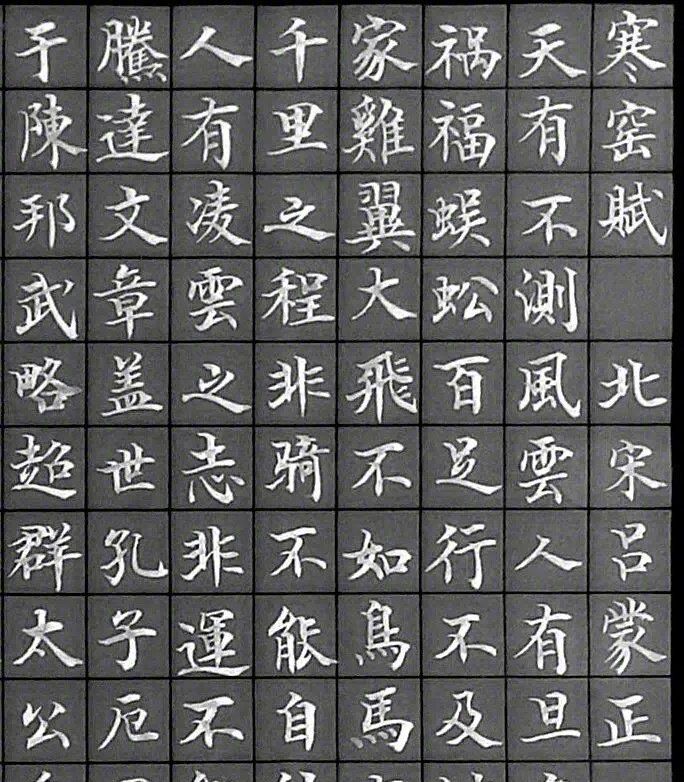 寒窑賦 北宋吕蒙正
天有不測風雲人有旦
祸福蜈蚣百足行不及
家雞翼大飛不如鳥馬
千里之程非騎不能自
人有凌雲之志非運不
騰達文章盖世孔子厄
于陳邦武略超群太公